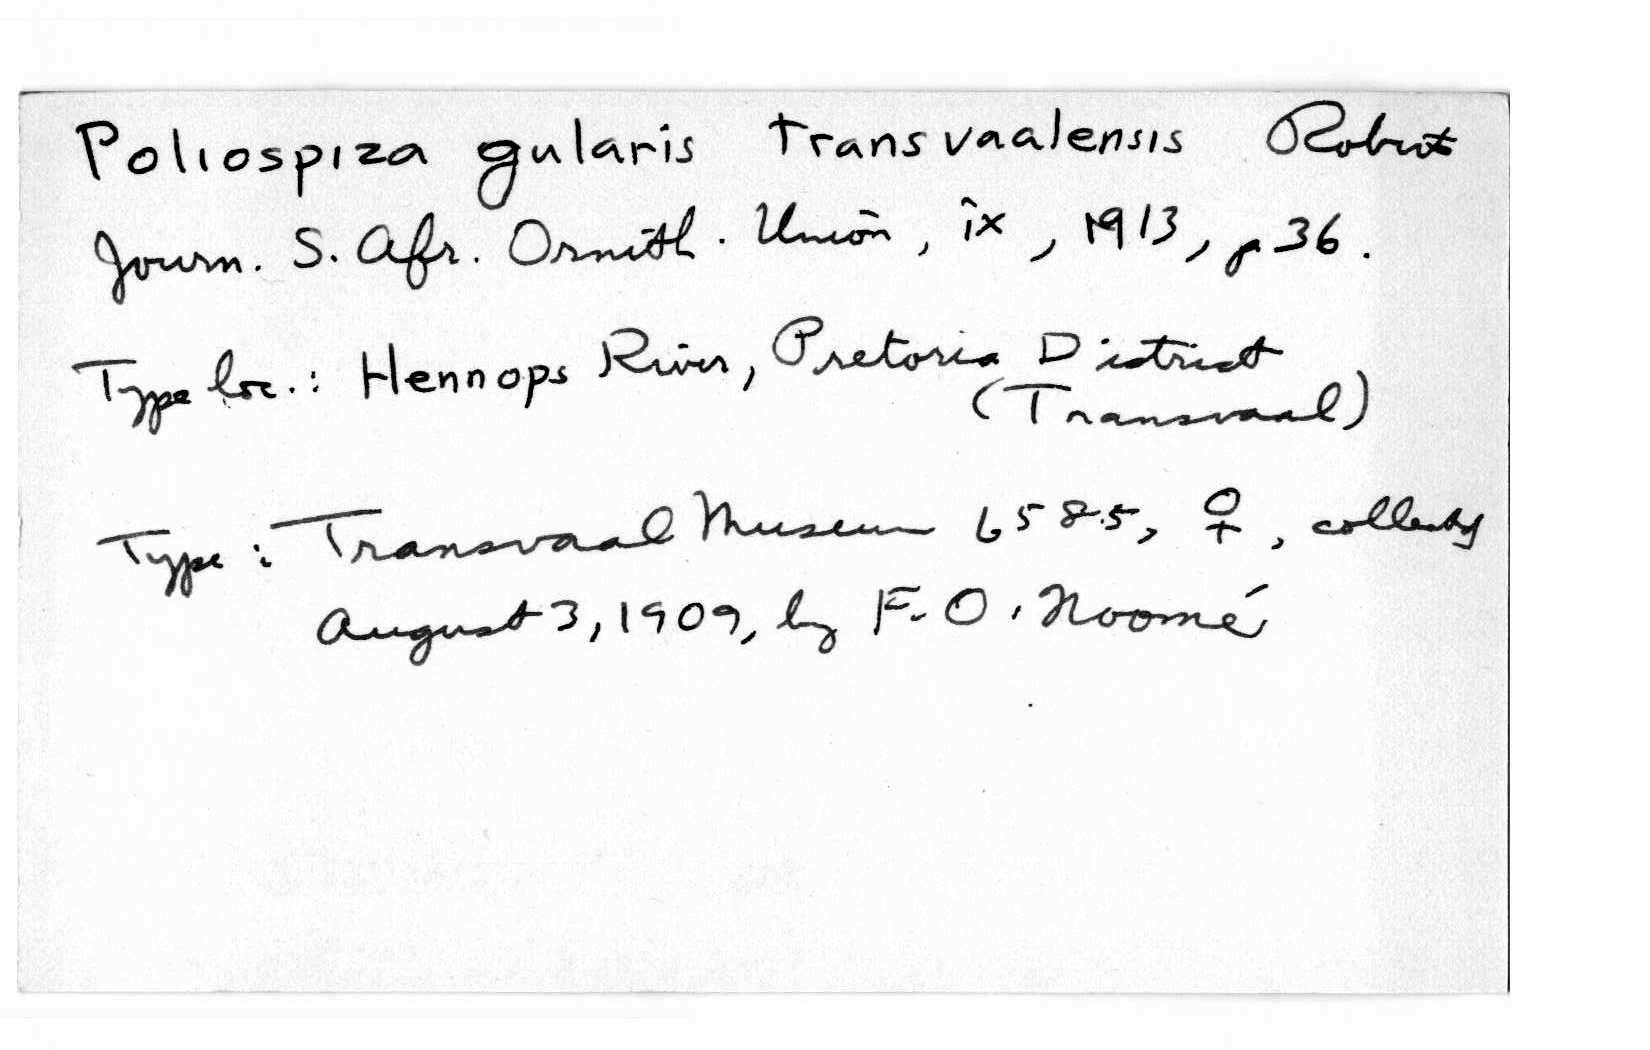 Poliospiza gularis transvaalensis Roberts
Journ. S. Afr. Ornith. Union, ix, 1913, p 36.
Type loc.: Hennops River, Pretoria District
(Transvaal)
Type: Transvaal Museum 6585, ♀, collected
August 3, 1909, by F. O. Noomé